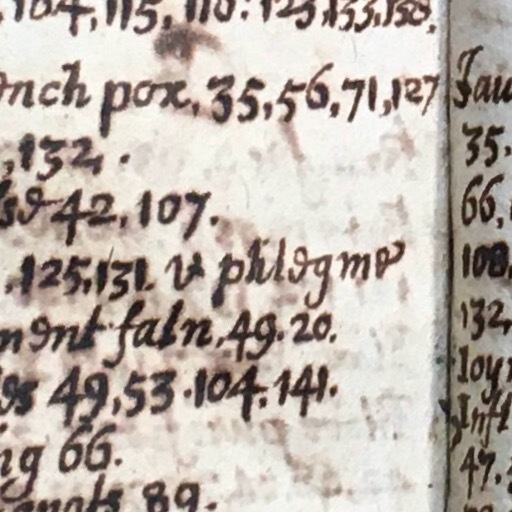 104, 115, 110: 123, 133, 138,
ench pox, 35, 56, 71, 127
, 132, .
42, 107.
. 125, 131. v phlegme
ment faln, 49. 20.
es 49, 53. 104. 141.
ng 66.
89.
Jau
35.
66,
108,
132,
Ioy
Infl
47.